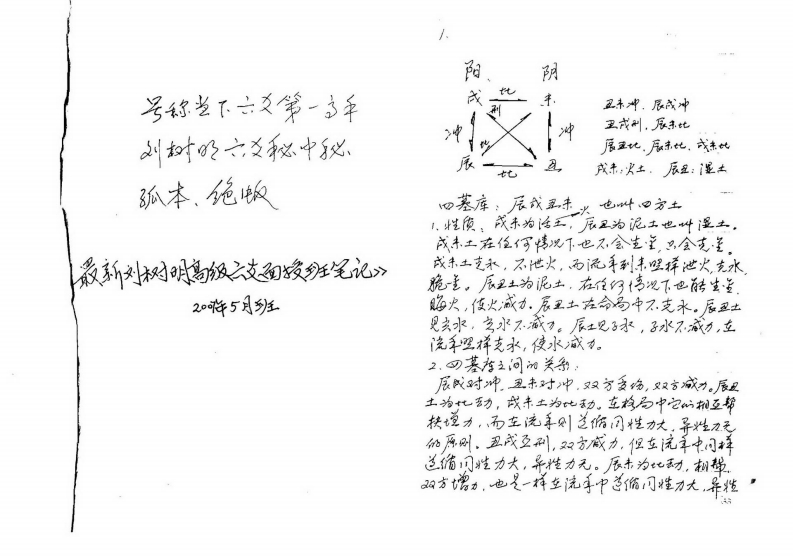 号称当下六爻第一高手
刘树明六爻秘中秘
孤本、绝版
最新刘树明高级六爻面授班笔记》
2009年5月班
1.
阳、 阴
戌 比 未
刑
冲 比 冲
辰 比 丑
丑未冲、辰戌冲
丑戌刑、辰未比
辰丑比、辰未比、戌未比
戌未:火土、辰丑:湿土
四墓库:辰戌丑未 也叫四方土
1.性质:戌未为活土,辰丑为泥土也叫湿土。
戌未土在任何情况下也不会生金,只会克金。
戌未土克水,不泄火,而流年到未照样泄火,克水,
脆金。辰丑土为泥土,在任何情况下也能生金,
晦火,使火减力。辰丑土在命局中不克水。辰丑土
见亥水,亥水不减力。辰土见子水,子水不减力,在
流年照样克水,使水减力。
2.四墓库之间的关系:
辰戌对冲、丑未对冲,双方受伤,双方减力。辰丑
土为比劫,戌未土为比劫。在格局中它们相互帮
扶增力,而在流年则遵循同性力大,异性力无
的原则。丑戌互刑,双方减力,但在流年中同样
遵循同性力大,异性力无。辰未为比劫,相帮,
双方增力,也是一样在流年中遵循同性力大,异性